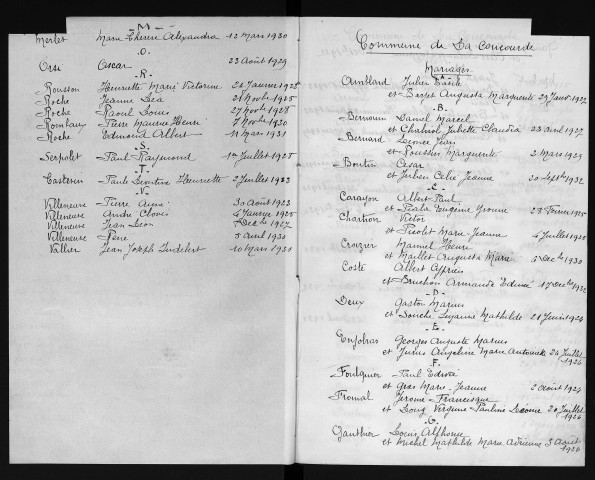 .M.
Merlet Marie Thérèse Alexandra 12 Mars 1930
.O.
Orsi Oscar 23 Août 1929
.R.
Rousson Henriette Marie Victorine 26 Janvier 1925
Roche Jeanne Léa
Roche Raoul Louis 27 Novbre 1928
Pierre Maurice Henri 7 Novbre 1930
Roche Edmond Albert 11 Mars 1931
.S.
Serpolet Paul Raymond 1er Juillet 1928
.T.
Paule Léontine Henriette 2 Juillet 1923
.V.
Villeneuve Pierre Aimé 30 Août 1923
Villeneuve André Clovis 4 Janvier 1925
Villeneuve Jean Léon 7 Decbre 1927
Villeneuve René 5 Avril 1930
Vallier Jean Joseph 10 Mars 1930
Commune de La Concourde
Mariages
.A.
Amblard Julien Basile
et Augusta Marguerite 29 Janv. 1922
.B.
Daniel Marcel
et Juliette Claudia 23 Avril 1927
Bernard Léonce Jean
et Roussin Marguerite 2 Mars 1929
Boutin César
et Julien Célie Jeanne 20 Septbre 1932
.C.
Carayon Albert Paul
et Eugénie Yvonne 28 Février 1925
Charrion Victor
et Marie-Jeanne 4 Juillet 1930
Crozier Marcel Henri
et Maillet Augusta Marie 6 Decbre 1930
Coste Albert Cyprien
et Bruchon Armande Edmée 17 Decbre 1932
.D.
Deux Gaston Marius
et Souche Suzanne Mathilde 21 Juin 1924
.E.
Enjolras Georges Auguste Marius
et Angéline Marie Antoinette 24 Juillet
.F.
Foulquier Paul Edmée
et Gras Marie-Jeanne 2 Août 1924
Jérôme Francisque
et Virginie Pauline Léonie 20 Juillet
1926
.G.
Gauthier Louis Alphonse
et Michel Mathilde Marie Adrienne 3 Août
1926